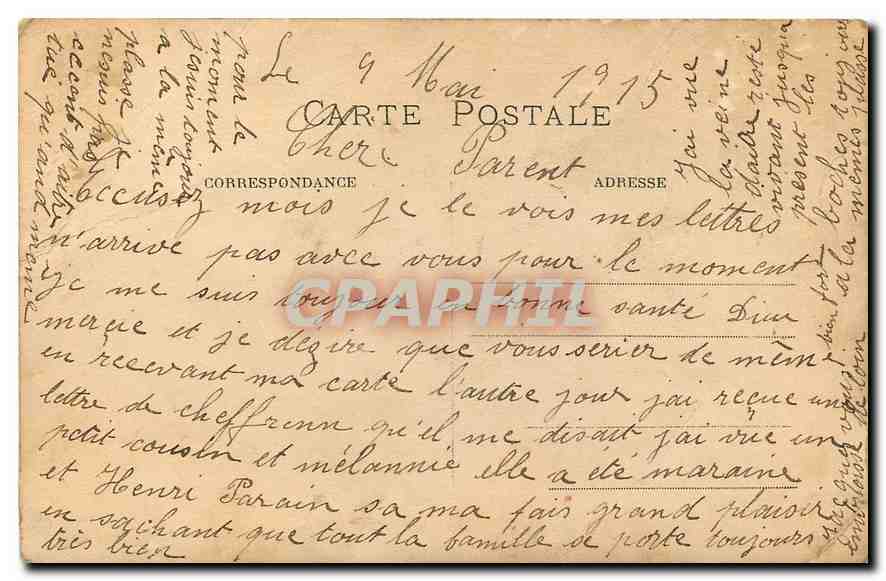 Le 9 Mai 1915
CARTE POSTALE
Cheré Parent
CORRESPONDANCE
ADRESSE
Eccusez mois je le vois mes lettres
n'arrive pas avec vous pour le moment
je me suis toujour en bonne santé Dieu
mercie et je dézire que vous serier de même
en recevant ma carte l'autre jour jai reçue une
lettre de qu'el me disait jai vue un
petit cousin et mélannie elle a été maraine
et Henri Parain sa ma fais grand plaisir
en sachant que tout la famille se porte toujours
très bien
pour le
moment
je suis toujours
a la même
plasse je
ne suis pas
tué qu'and meme
Jai vue
la veine
daitre reste
vivant jusqua
présent les
boches
a la mêmes plasse
vous bien fort
de loin
CPAPHIL